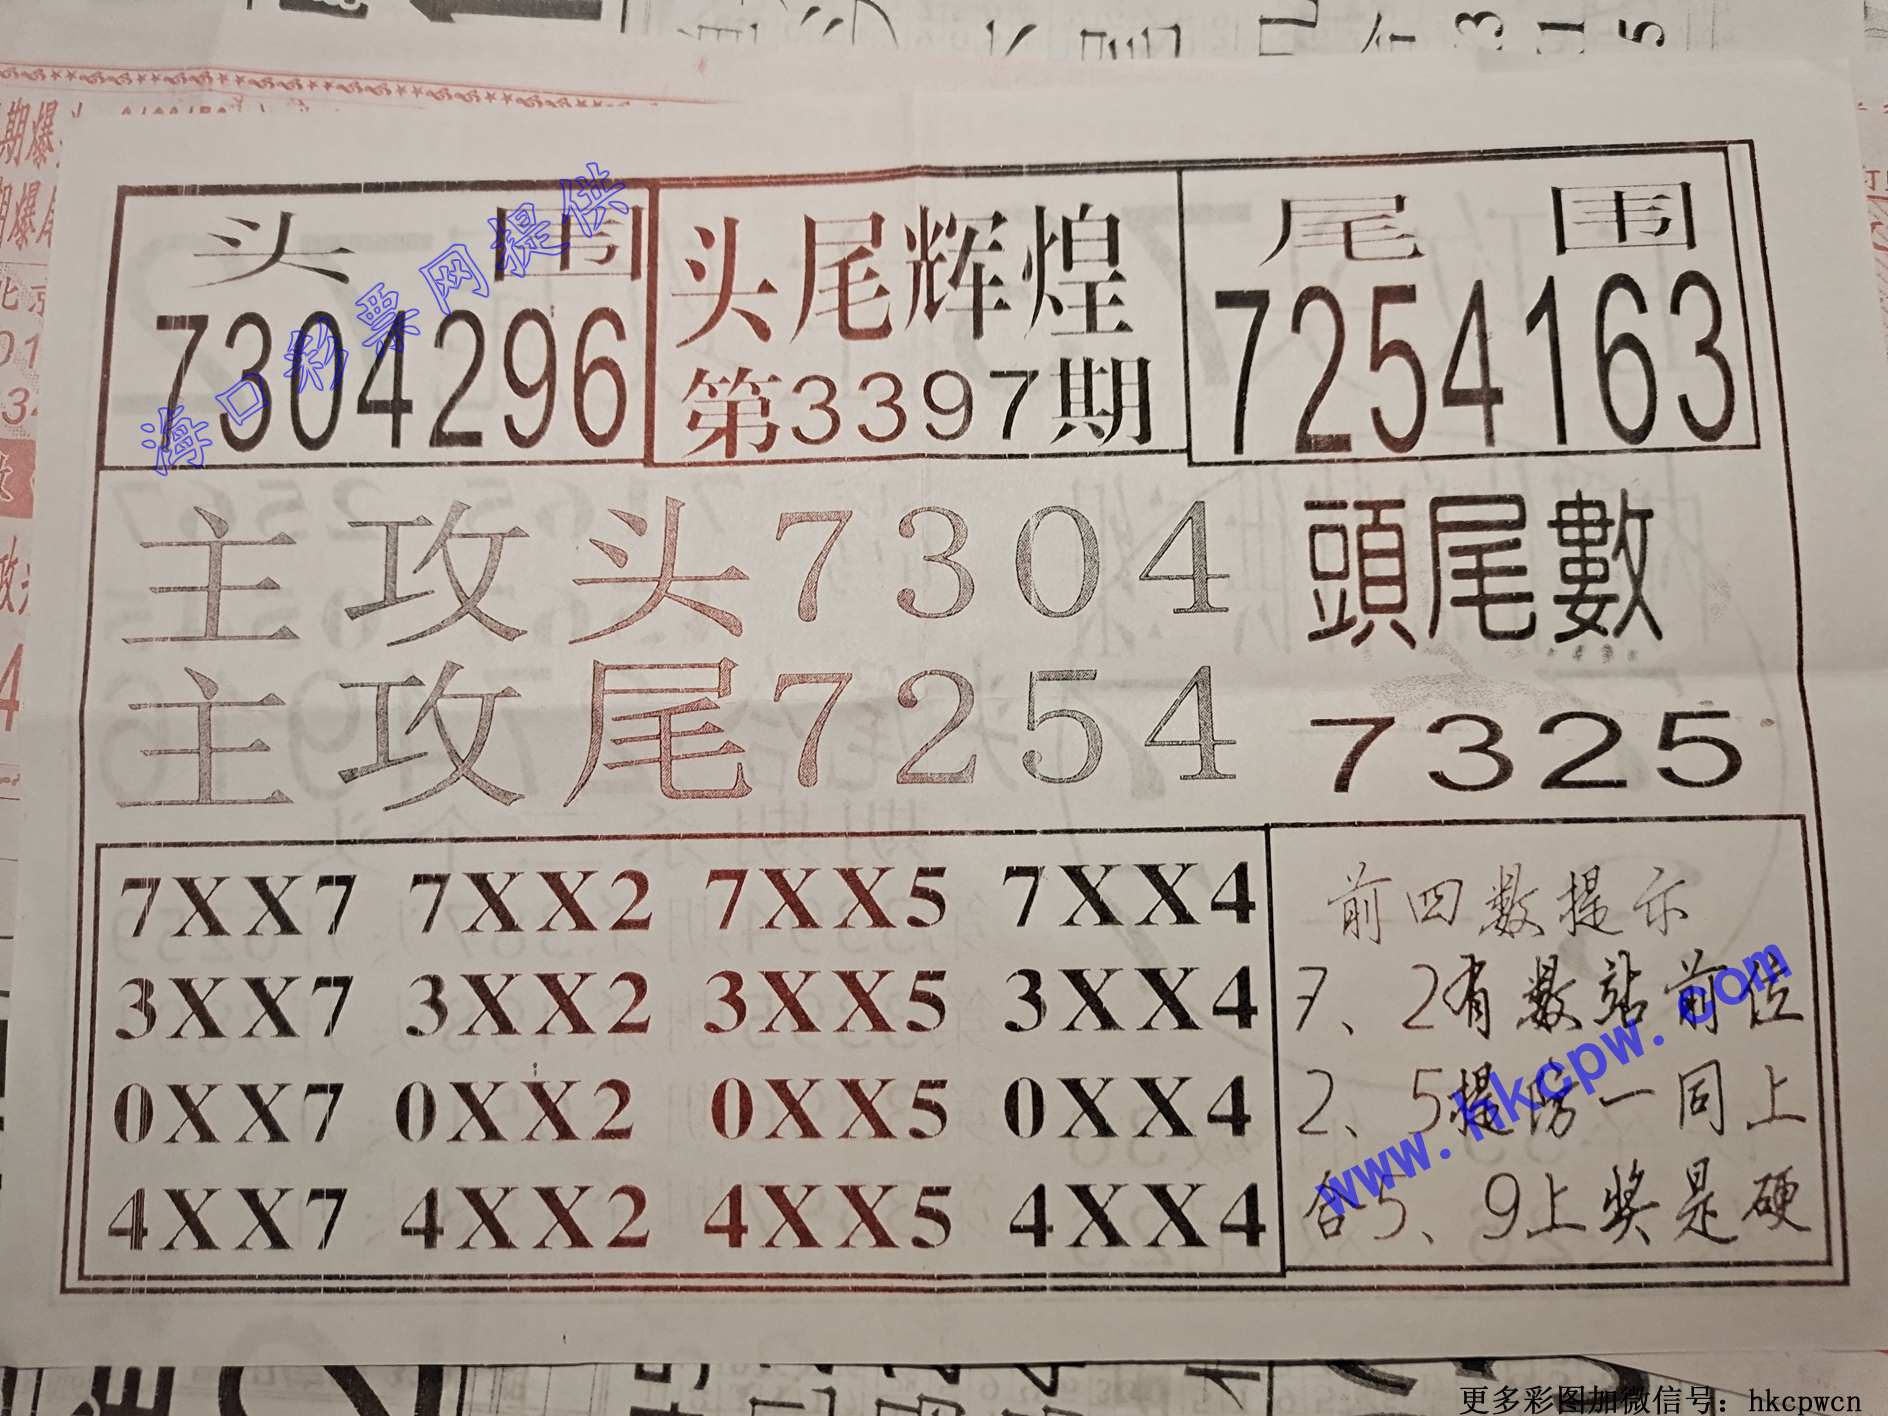 头 围
7304296
头尾辉煌
第3397期
尾 围
7254163
海口彩票网提供
主攻头7304
主攻尾7254
頭尾數
7325
7XX7 7XX2 7XX5 7XX4
3XX7 3XX2 3XX5 3XX4
0XX7 0XX2 0XX5 0XX4
4XX7 4XX2 4XX5 4XX4
前四数提示
7、2有数站前位
2、5提防一同上
合5、9上奖是硬
www.hkcpw.com
更多彩图加微信号：hkcpwcn